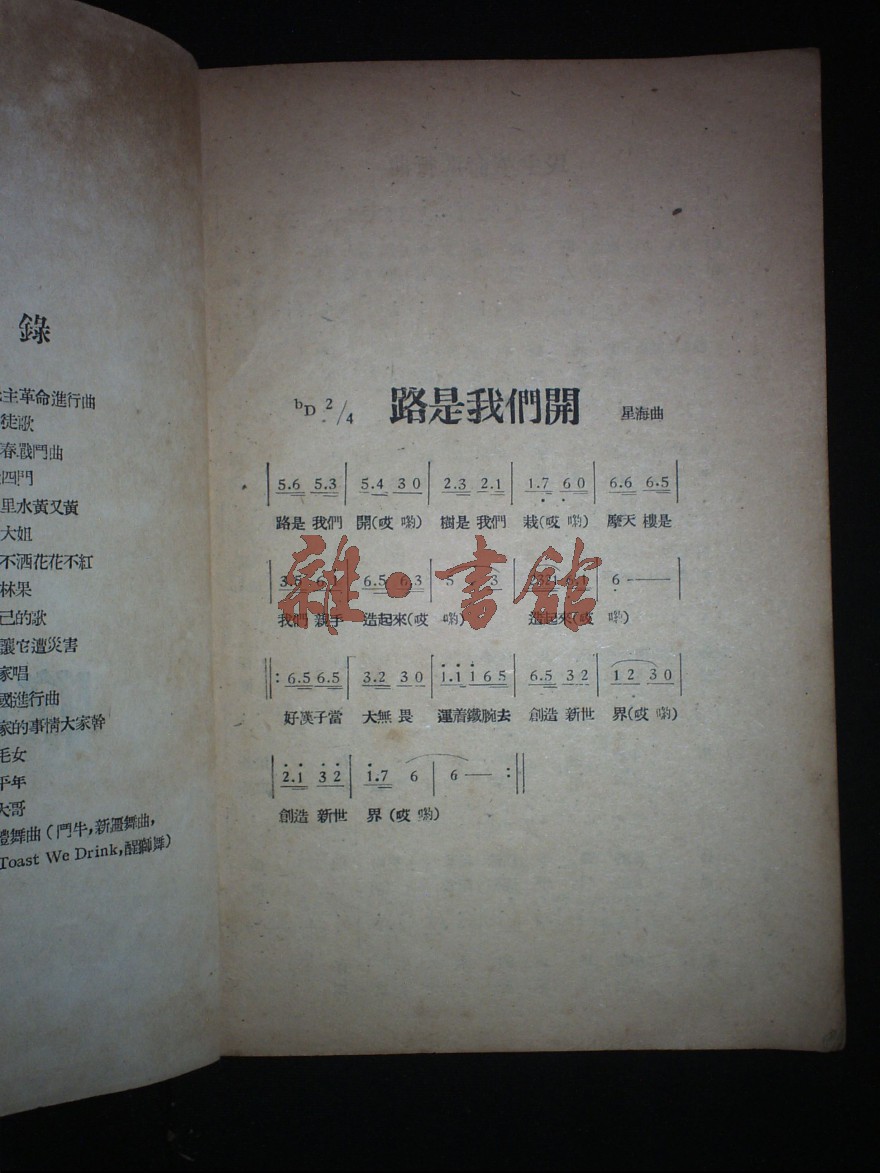 錄
主革命進行曲
徒歌
春戰鬥曲
四門
里水黃又黃
大姐
不洒花花不紅
林果
己的歌
讓它遭災害
家唱
國進行曲
家的事情大家幹
毛女
平年
大哥
禮舞曲(鬥牛,新疆舞曲,
Toast We Drink,醒獅舞)
bD 2/4 路是我們開 星海曲
5.6 5.3 | 5.4 3 0 | 2.3 2.1 | 1.7 6 0 | 6.6 6.5
路是 我們 開(哎 喲) 樹是 我們 栽(哎 喲) 摩天 樓是
3.6 6.1 | 6.5 6.3 | 5 3 | 2321 6.1 | 6 —
我們 親手 造起來(哎 喲) 造起來(哎 喲)
雜·書館
‖: 6.5 6.5 | 3.2 3 0 | 1.1 1 6 5 | 6.5 3 2 | 1 2 3 0 |
好漢子當 大無 畏 運着鐵腕去 創造 新世 界(哎 喲)
2.1 3 2 | 1.7 6 | 6 — :‖
創造 新世 界 (哎 喲)